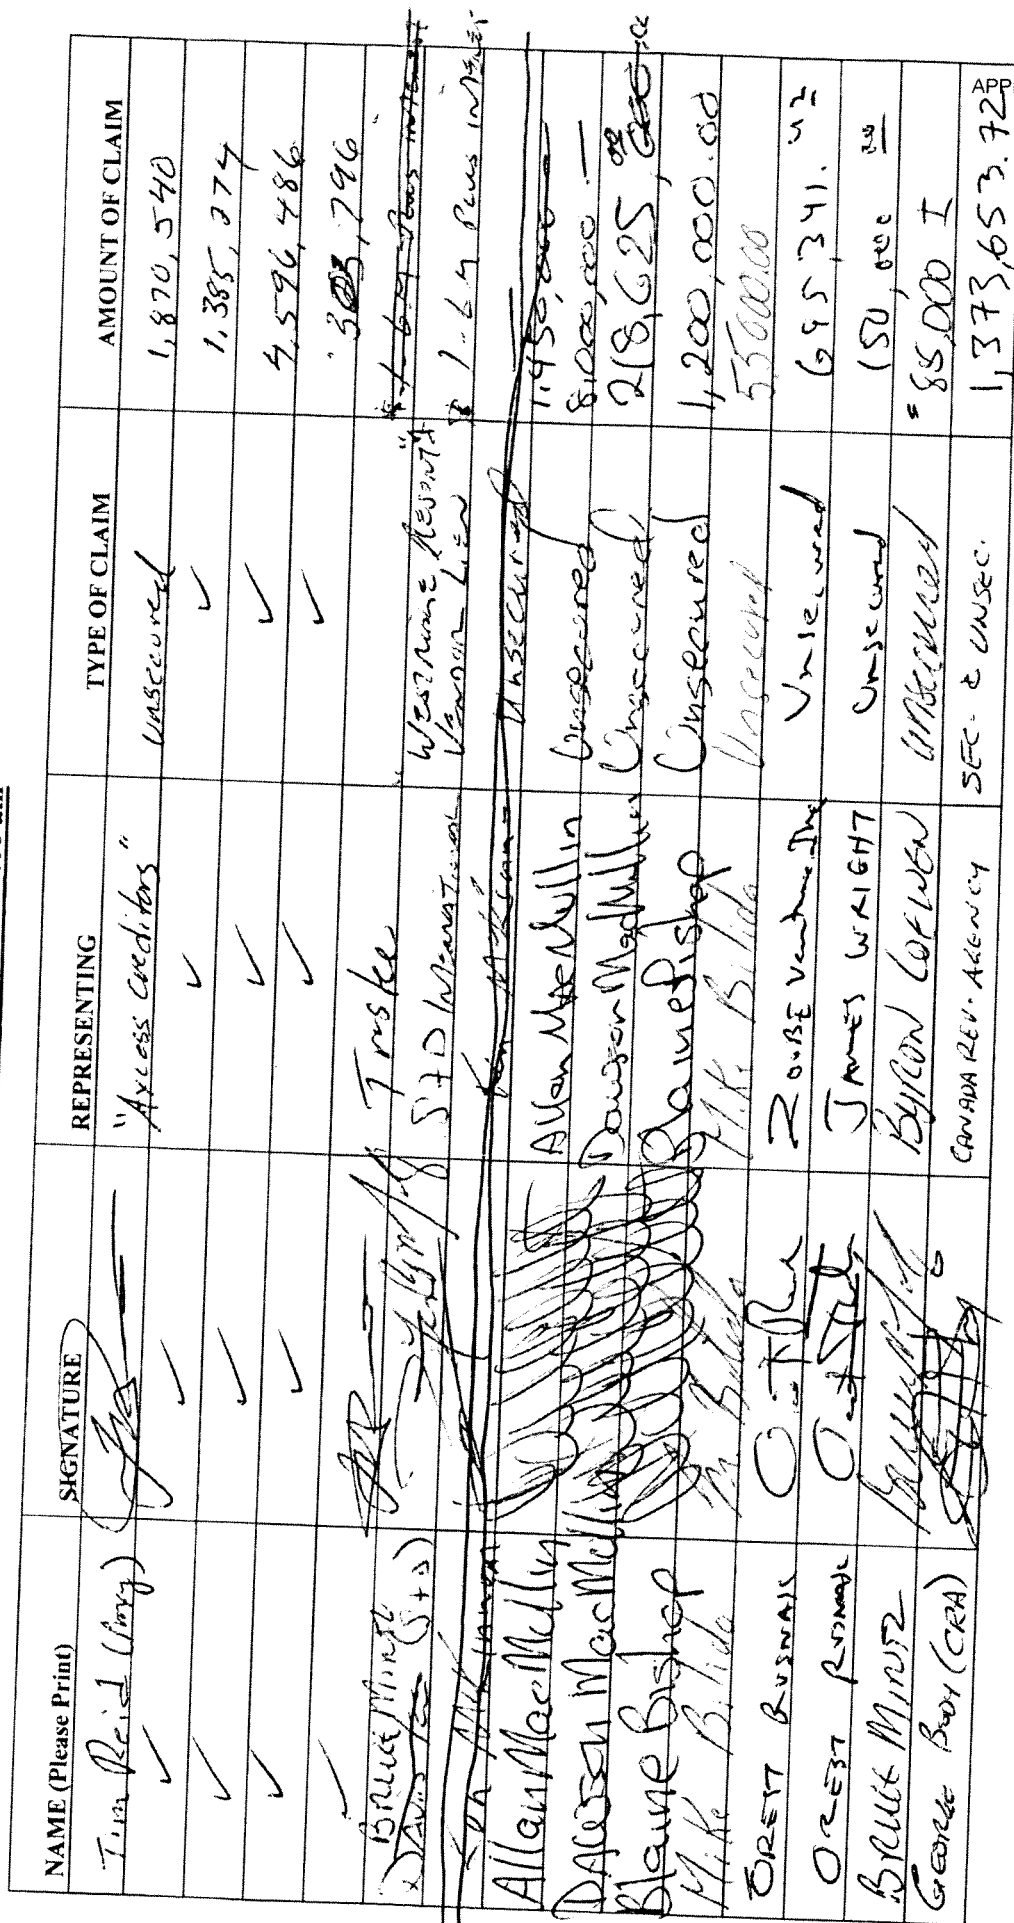 NAME (Please Print) SIGNATURE REPRESENTING TYPE OF CLAIM AMOUNT OF CLAIM
Tim Reid "Axcess Creditors" unsecured 1,870,540
✓ ✓ ✓ ✓ 1,385,274
✓ ✓ ✓ ✓ 4,596,486
✓ ✓ ✓ ✓
BRUCE MINTZ Trske "
(S+D) S+D "WESTRIDGE VENDOR LIEN 1.6M Plus
unsecured 1,450,000
Allan MacMullin Allan MacMullin Unsecured 8,000,000.—
DAWSON MacMullin Dawson MacMullin Unsecured 218,625
Blaine Bishop Blaine Bishop Unsecured 1,200,000.00
Mike Bilida Mike Bilida Unsecured 55000.00
OREST RUSNAK ZOUBE Ventures Inc Unsecured 695,341.42
OREST RUSNAK JAMES WRIGHT Unsecured 150,000
BRUCE MINTZ BYRON LOEWEN UNSECURED 85,000
GEORGE BODY (CRA) CANADA REV. AGENCY SEC. & UNSEC. 1,373,653.72
APP